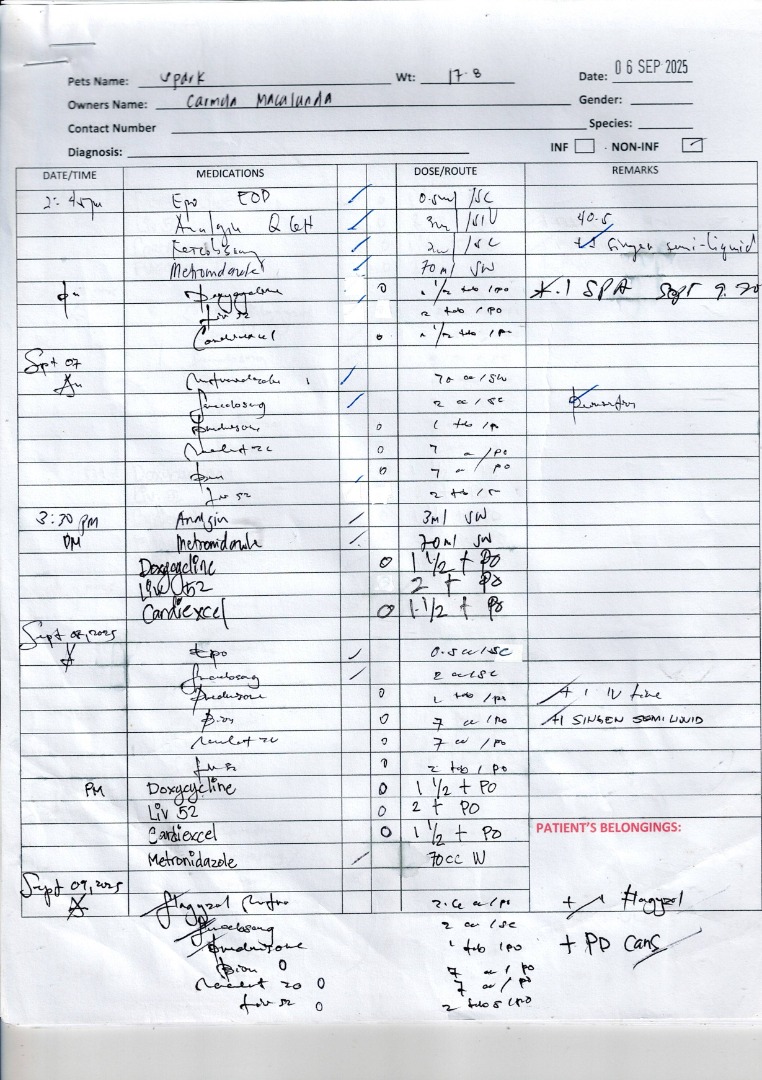 Pets Name: Spark Wt: 17.8 Date: 06 SEP 2025
Owners Name: Carmela Macalanda Gender:
Contact Number Species:
Diagnosis: INF NON-INF
DATE/TIME MEDICATIONS DOSE/ROUTE REMARKS
2:45pm Epo EOD 0.5ml /SC
Analgin Q6H 3ml /SIV 40.5
2ml /SC singen semi-liquid
Metronidazole 70ml SW
Doxycycline 1 1/2 tab /PO 1 SPA Sept 9
Liv 52 2 tab /PO
Cardiexcel 1 1/2 tab /PO
Sept 07
Metronidazole 70 cc /SW
2 cc /SC
Prednisone 1 tab /PO
7 cc /PO
7 cc /PO
Liv 52 2 tab
3:30 PM Analgin 3ml SW
PM Metronidazole 70ml SW
Doxycycline 1 1/2 t PO
Liv 52 2 t PO
Cardiexcel 1-1/2 t PO
Sept 08, 2025
Epo 0.5 cc/SC
2 cc/SC
Prednisone 1 tab /PO + 1 IV line
7 cc /PO +1 SINGEN SEMI LIQUID
7 cc /PO
Liv 52 2 tab /PO
PM Doxycycline 1 1/2 t PO
Liv 52 2 t PO
Cardiexcel 1 1/2 t PO
PATIENT'S BELONGINGS:
Metronidazole 70cc IV
Sept 09, 2025
Flagyzol cc/PO + Flagyzol
2 cc /SC
Prednisone 1 tab /PO + PD cans
7 cc / PO
7 cc / PO
Liv 52 2 tabs /PO